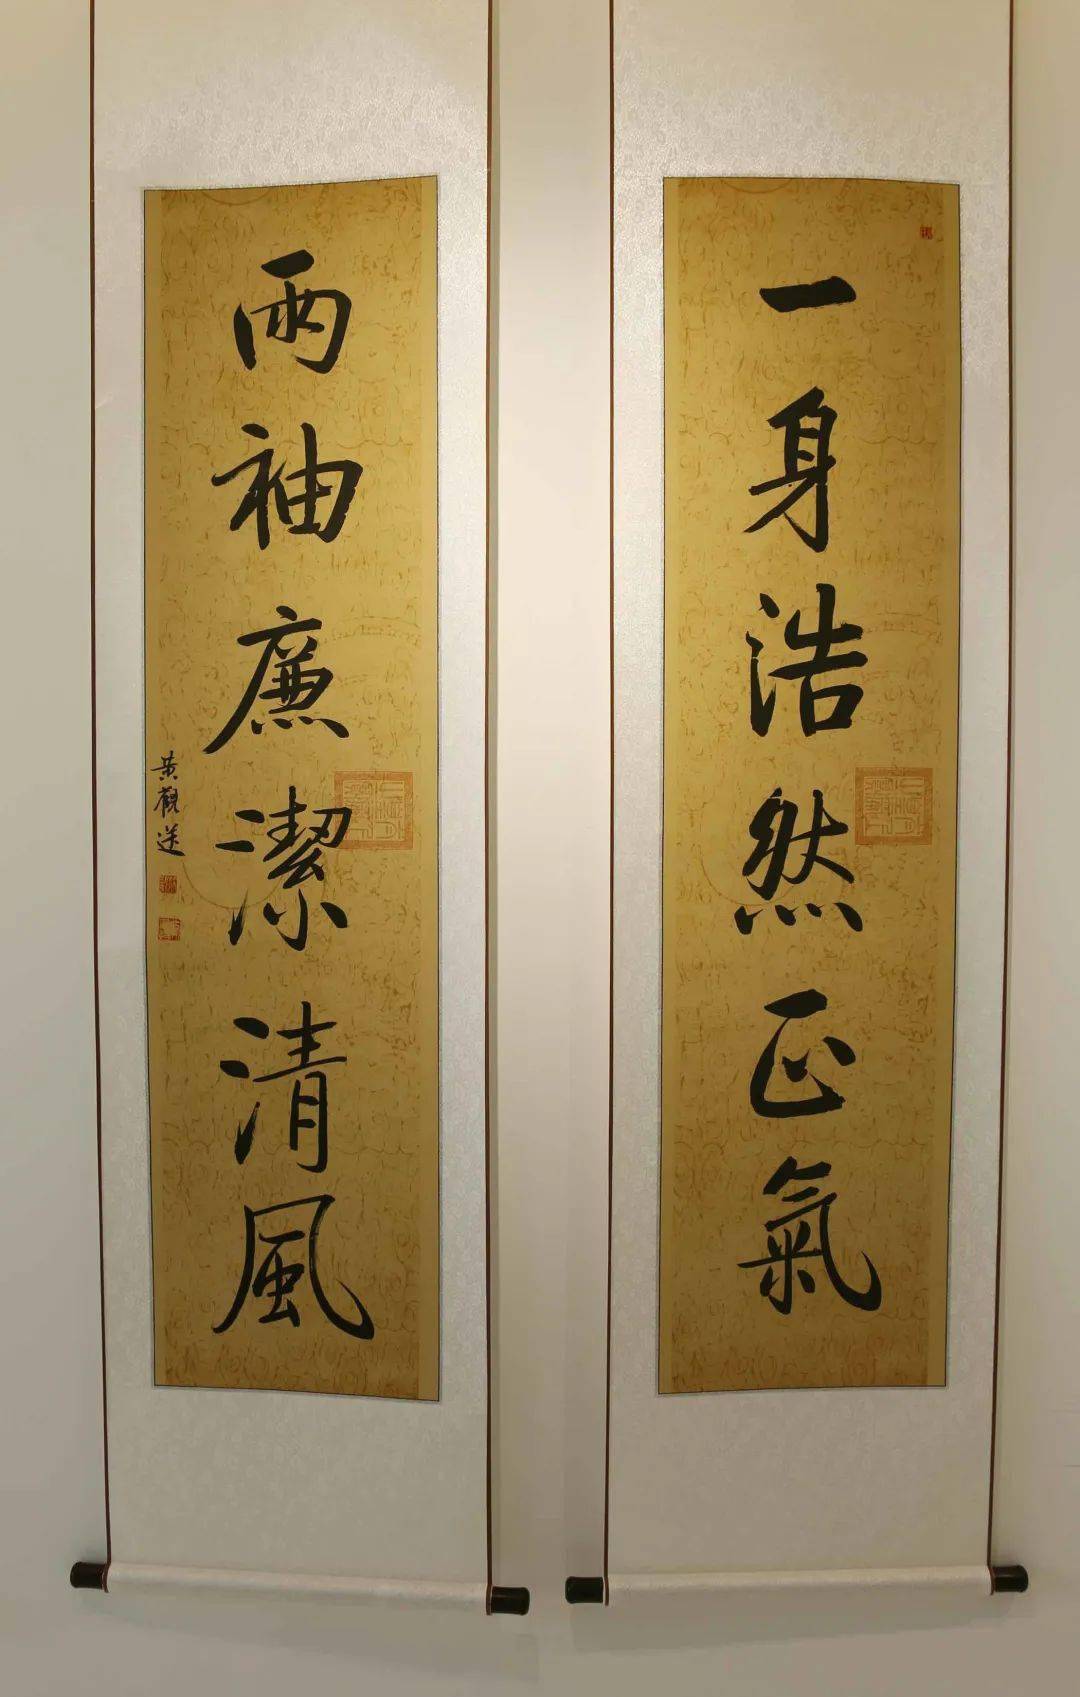 一身浩然正氣
兩袖廉潔清風
黃觀送